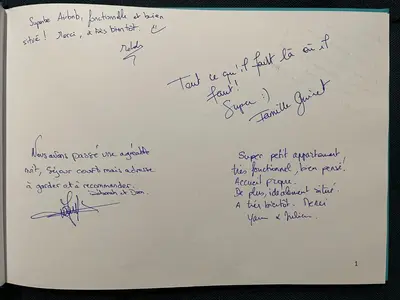 Superbe Airbnb, fonctionnelle et bien
situé ! Merci, à très bientôt.
Tout ce qu'il faut là où il
faut !
Super :)
Famille
Nous avons passé une agréable
nuit, Séjour courts mais adresse
à garder et à recommander.
Deborah et Dom.
Super petit appartement
très fonctionnel, bien pensé!
Accueil propre.
De plus, idéalement situé.
A très bientôt. Merci
Yann & Julien.
1